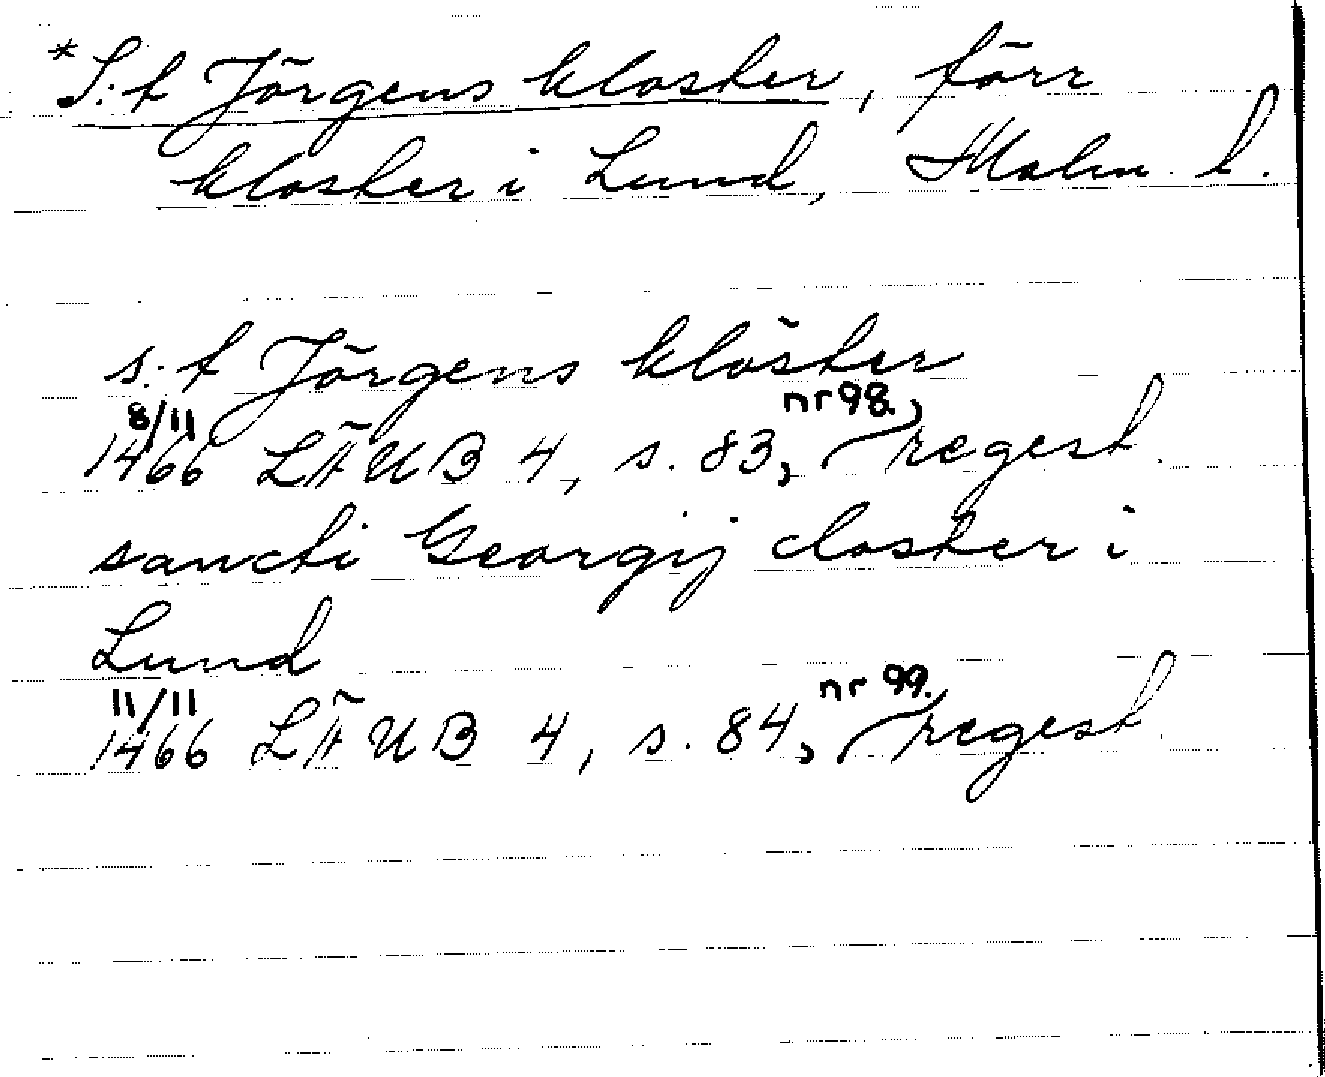 *S:t Jörgens kloster, förr
kloster i Lund, Malm. l.
s:t Jörgens klöster
8/11 1466 LÄUB 4, s. 83, nr 98, regest.
sancti Georgij closter i
Lund
11/11 1466 LÄUB 4, s. 84, nr 99, regest.